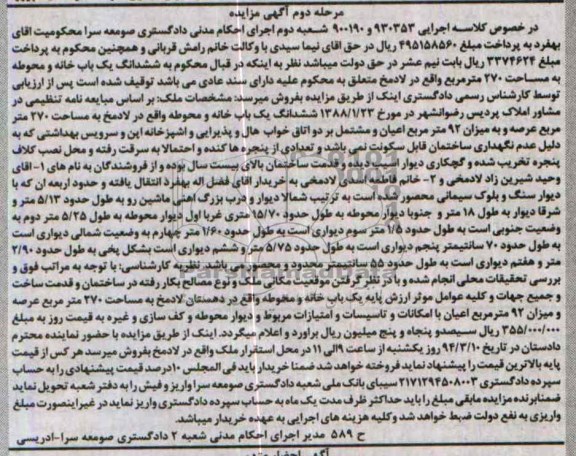 مرحله دوم آگهی مزایده
در خصوص کلاسه اجرایی ۹۳۰۳۵۳ و ۹۰۰۱۹۰ شعبه دوم اجرای احکام مدنی دادگستری صومعه سرا محکومیت آقای
بهفرد به پرداخت مبلغ ۴۹۵۱۵۸۵۶۰ ریال در حق آقای نیما سیدی با وکالت خانم رامش قربانی و همچنین محکوم به پرداخت
مبلغ ۳۳۷۴۶۲۴ ریال بابت نیم عشر در حق دولت میباشد نظر به اینکه در قبال محکوم به ششدانگ یک باب خانه و محوطه
به مساحت ۲۷۰ مترمربع واقع در لادمخ متعلق به محکوم علیه دارای سند عادی می باشد توقیف شده است پس از ارزیابی
توسط کارشناس رسمی دادگستری اینک از طریق مزایده بفروش میرسد: مشخصات ملک: بر اساس مبایعه نامه تنظیمی در
مشاور املاک پردیس رضوانشهر در مورخ ۱۳۸۸/۱/۲۳ ششدانگ یک باب خانه و محوطه واقع در لادمخ به مساحت ۲۷۰ متر
مربع عرصه و به میزان ۹۲ متر مربع اعیان و مشتمل بر دو اتاق خواب هال و پذیرایی و آشپزخانه اپن و سرویس بهداشتی که به
دلیل عدم نگهداری ساختمان قابل سکونت نمی باشد و تعدادی از پنجره ها کنده و احتمالا به سرقت رفته و محل نصب کلاف
پنجره تخریب شده و گچکاری دیوار آسیب دیده و قدمت ساختمان بالای بیست سال بوده و از فروشندگان به نام های ۱- آقای
وحید شیرین زاد لادمخی و ۲- خانم فاطمه اسدی لادمخی به خریدار آقای فضل اله بهفرد انتقال یافته و حدود اربعه آن که با
دیوار سنگ و بلوک سیمانی محصور شده است به ترتیب شمالا دیوار و درب بزرگ آهنی ماشین رو به طول حدود ۵/۱۳ متر و
شرقا دیوار به طول ۱۸ متر و جنوبا دیوار محوطه به طول حدود ۱۵/۷۰ متری غربا اول دیوار محوطه به طول ۵/۲۵ متر دوم به
وضعیت جنوبی است به طول حدود ۱/۵ متر سوم دیواری است به طول حدود ۱/۶۰ متر چهارم به وضعیت شمالی دیواری است
به طول حدود ۷۰ سانتیمتر پنجم دیواری است به طول حدود ۵/۷۵ متر و ششم دیواری است بشکل پخی به طول حدود ۲/۹۰
متر و هفتم دیواری است به طول حدود ۵۵ سانتیمتر محدود و محصور می باشد. نظریه کارشناسی: با توجه به مراتب فوق و
بررسی تحقیقات محلی انجام شده و با در نظر گرفتن موقعیت مکانی ملک و نوع مصالح بکار رفته در ساختمان و قدمت ساخت
و جمیع جهات و کلیه عوامل موثر ارزش پایه یک باب خانه و محوطه واقع در دهستان لادمخ به مساحت ۲۷۰ متر مربع عرصه
و میزان ۹۲ مترمربع اعیان با امکانات و تاسیسات و امتیازات مربوط و دیوار محوطه و کف سازی و غیره به قیمت روز به مبلغ
۳۵۵/۰۰۰/۰۰۰ ریال سیصدو پنجاه و پنج میلیون ریال براورد و اعلام میگردد. اینک از طریق مزایده با حضور نماینده محترم
دادستان در تاریخ ۹۴/۳/۱۰ روز یکشنبه از ساعت ۹الی ۱۱ در محل استقرار ملک واقع در لادمخ بفروش میرسد هر کس از قیمت
پایه بالاترین قیمت را پیشنهاد نماید فروخته خواهد شد ضمنا خریدار باید فی المجلس ۱۰درصد قیمت پیشنهادی را به حساب
سپرده دادگستری ۲۱۷۱۲۹۴۵۰۸۰۰۳ سیبای بانک ملی شعبه دادگستری صومعه سرا واریز و فیش را به دفتر شعبه تحویل نماید
ضمنابرنده مزایده مابقی مبلغ را باید حداکثر ظرف مدت یک ماه به حساب سپرده دادگستری واریز نماید در غیراینصورت مبلغ
واریزی به نفع دولت ضبط خواهد شد و کلیه هزینه های اجرایی به عهده خریدار میباشد.
ح ۵۸۹ مدیر اجرای احکام مدنی شعبه ۲ دادگستری صومعه سرا-ادریسی